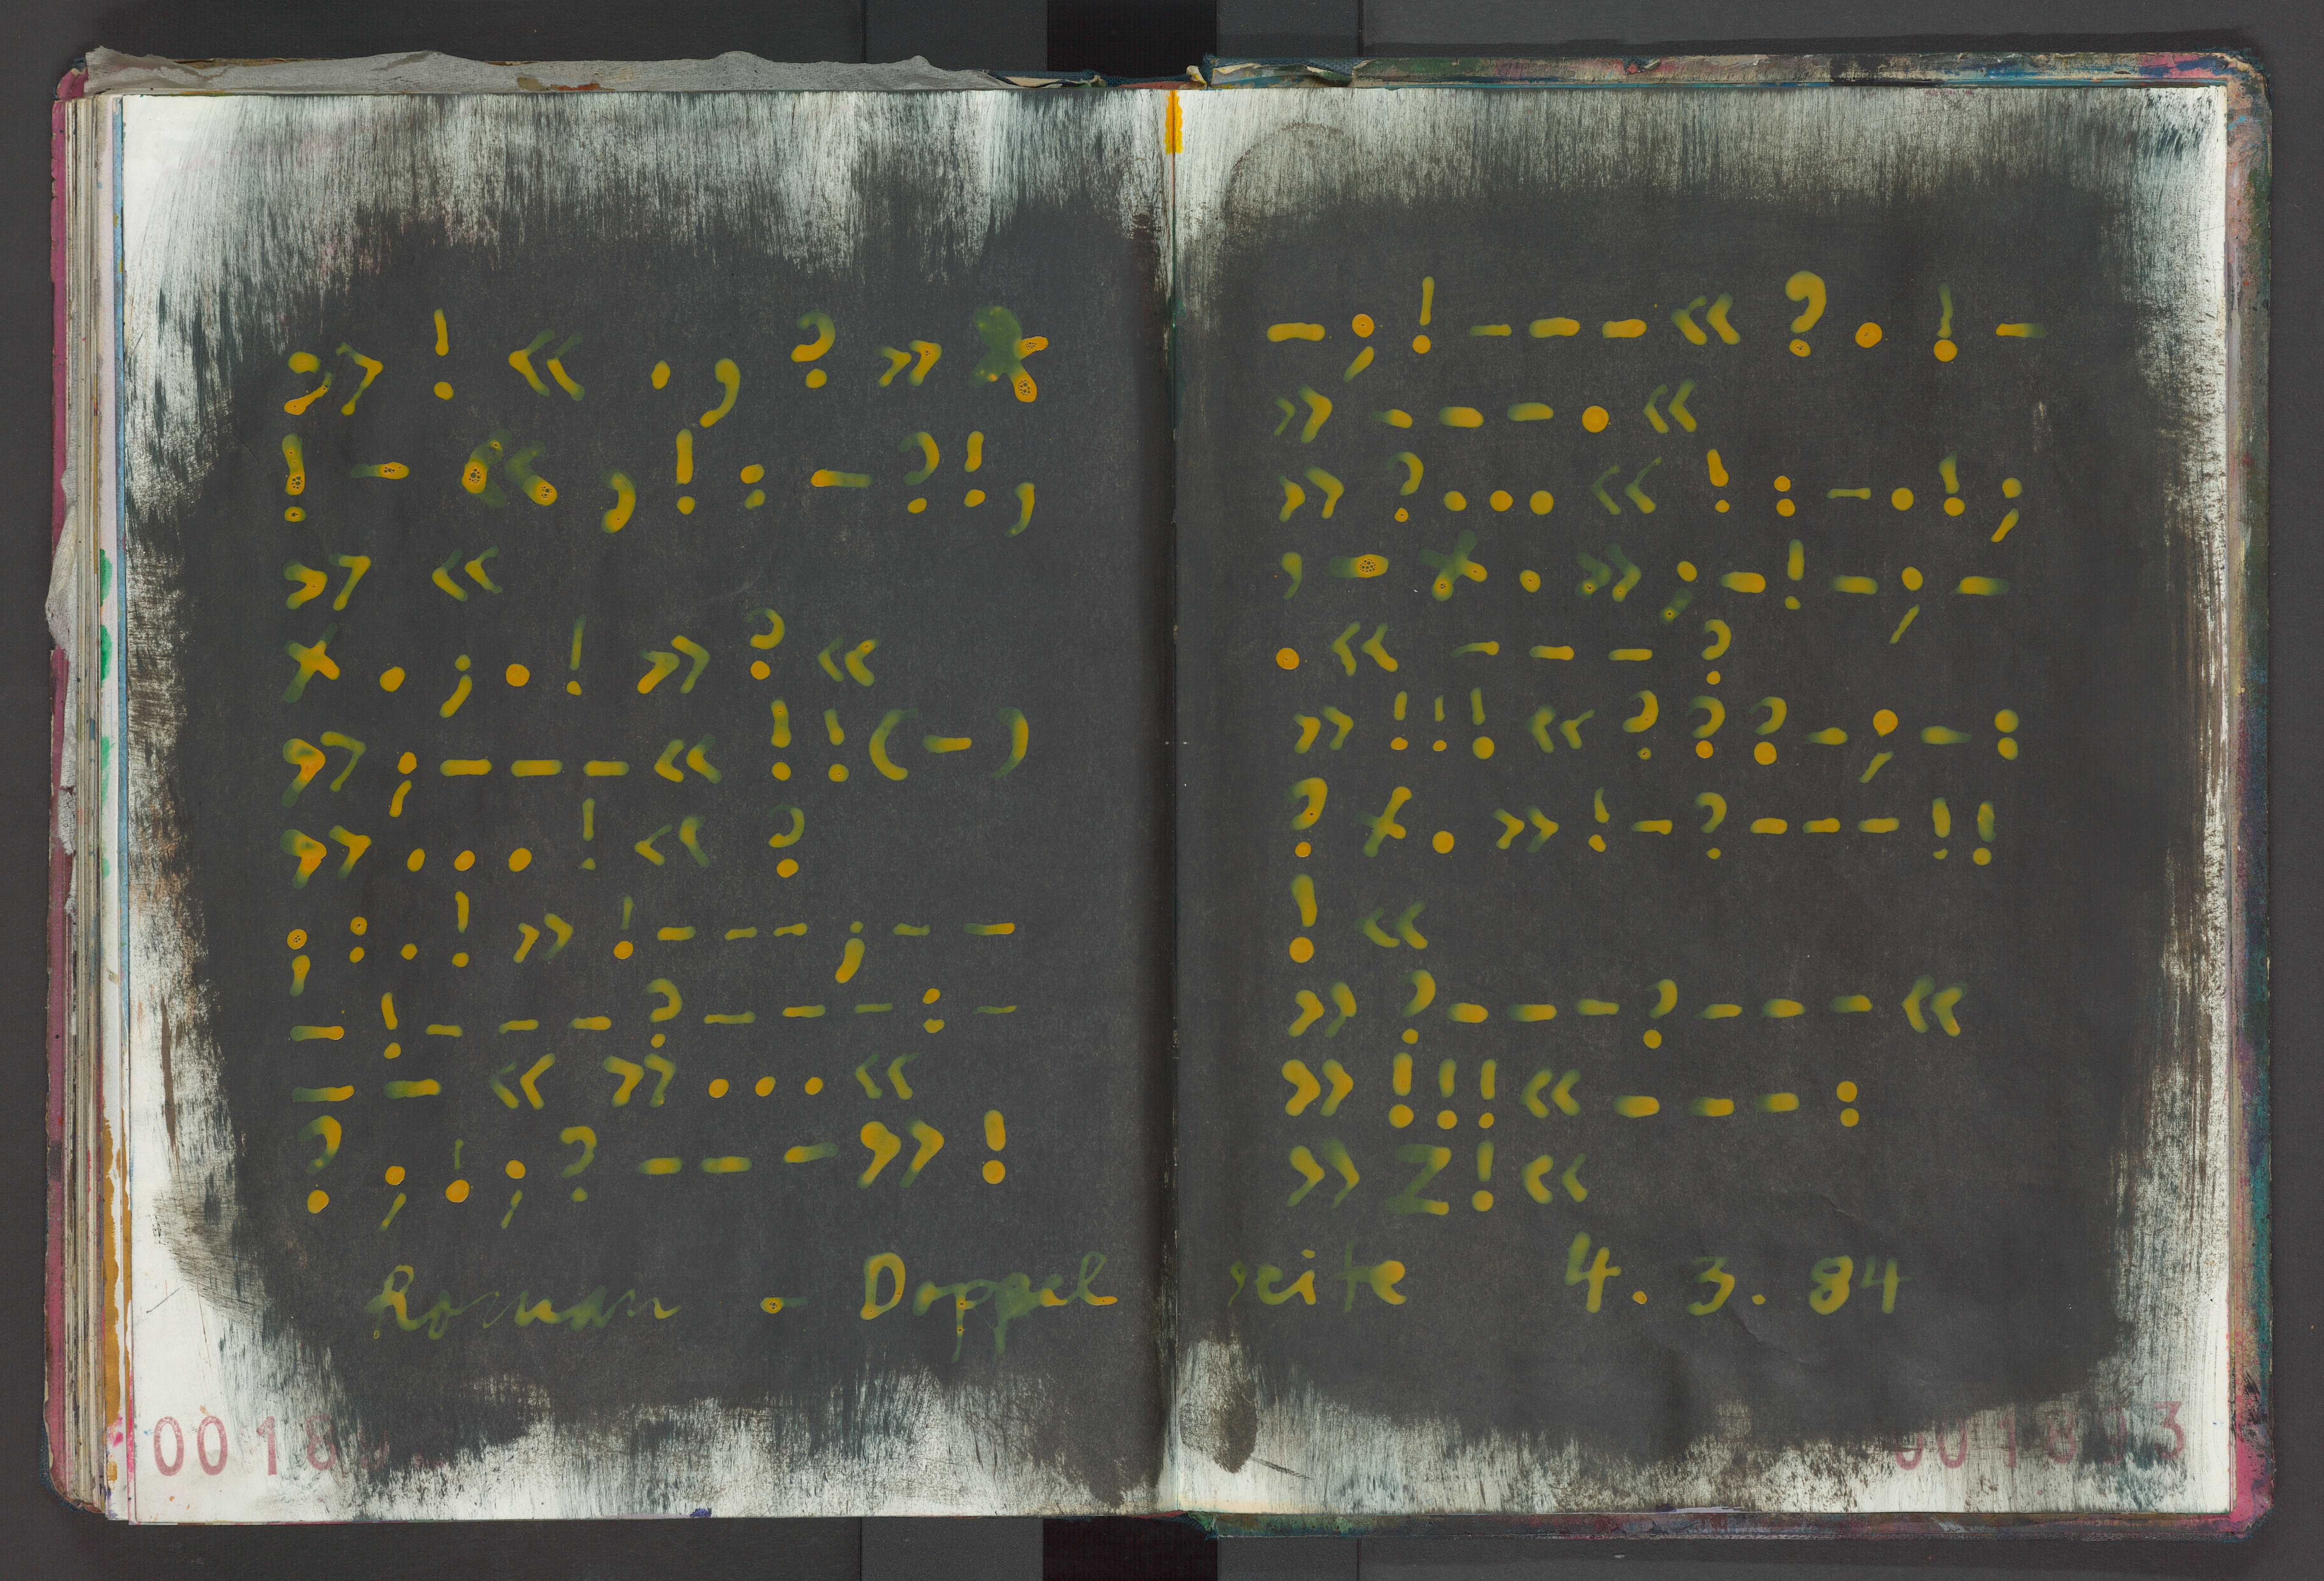 » ! « . , ? » x
! - « , ! : - ? ! ,
» «
x . ; . ! » ? «
» ; - - - « ! ! ( - )
» . . . ! « ?
; : . ! » ! - - - ; - -
- ! - - - ? - - - : -
- - « » . . . «
? ; ! ; ? - - - » !
- ; ! - - - « ? . ! -
» - - - . «
» ? . . . « ! : - . ! ;
, - x . » ; - ! - ; -
. « - - - ?
» ! ! ! « ? ? ? - ; - :
? x . » ! - ? - - - ! !
! «
» ? - - - ? - - - «
» ! ! ! « - - - :
» Z ! «
Roman - Doppel seite 4. 3. 84
001893